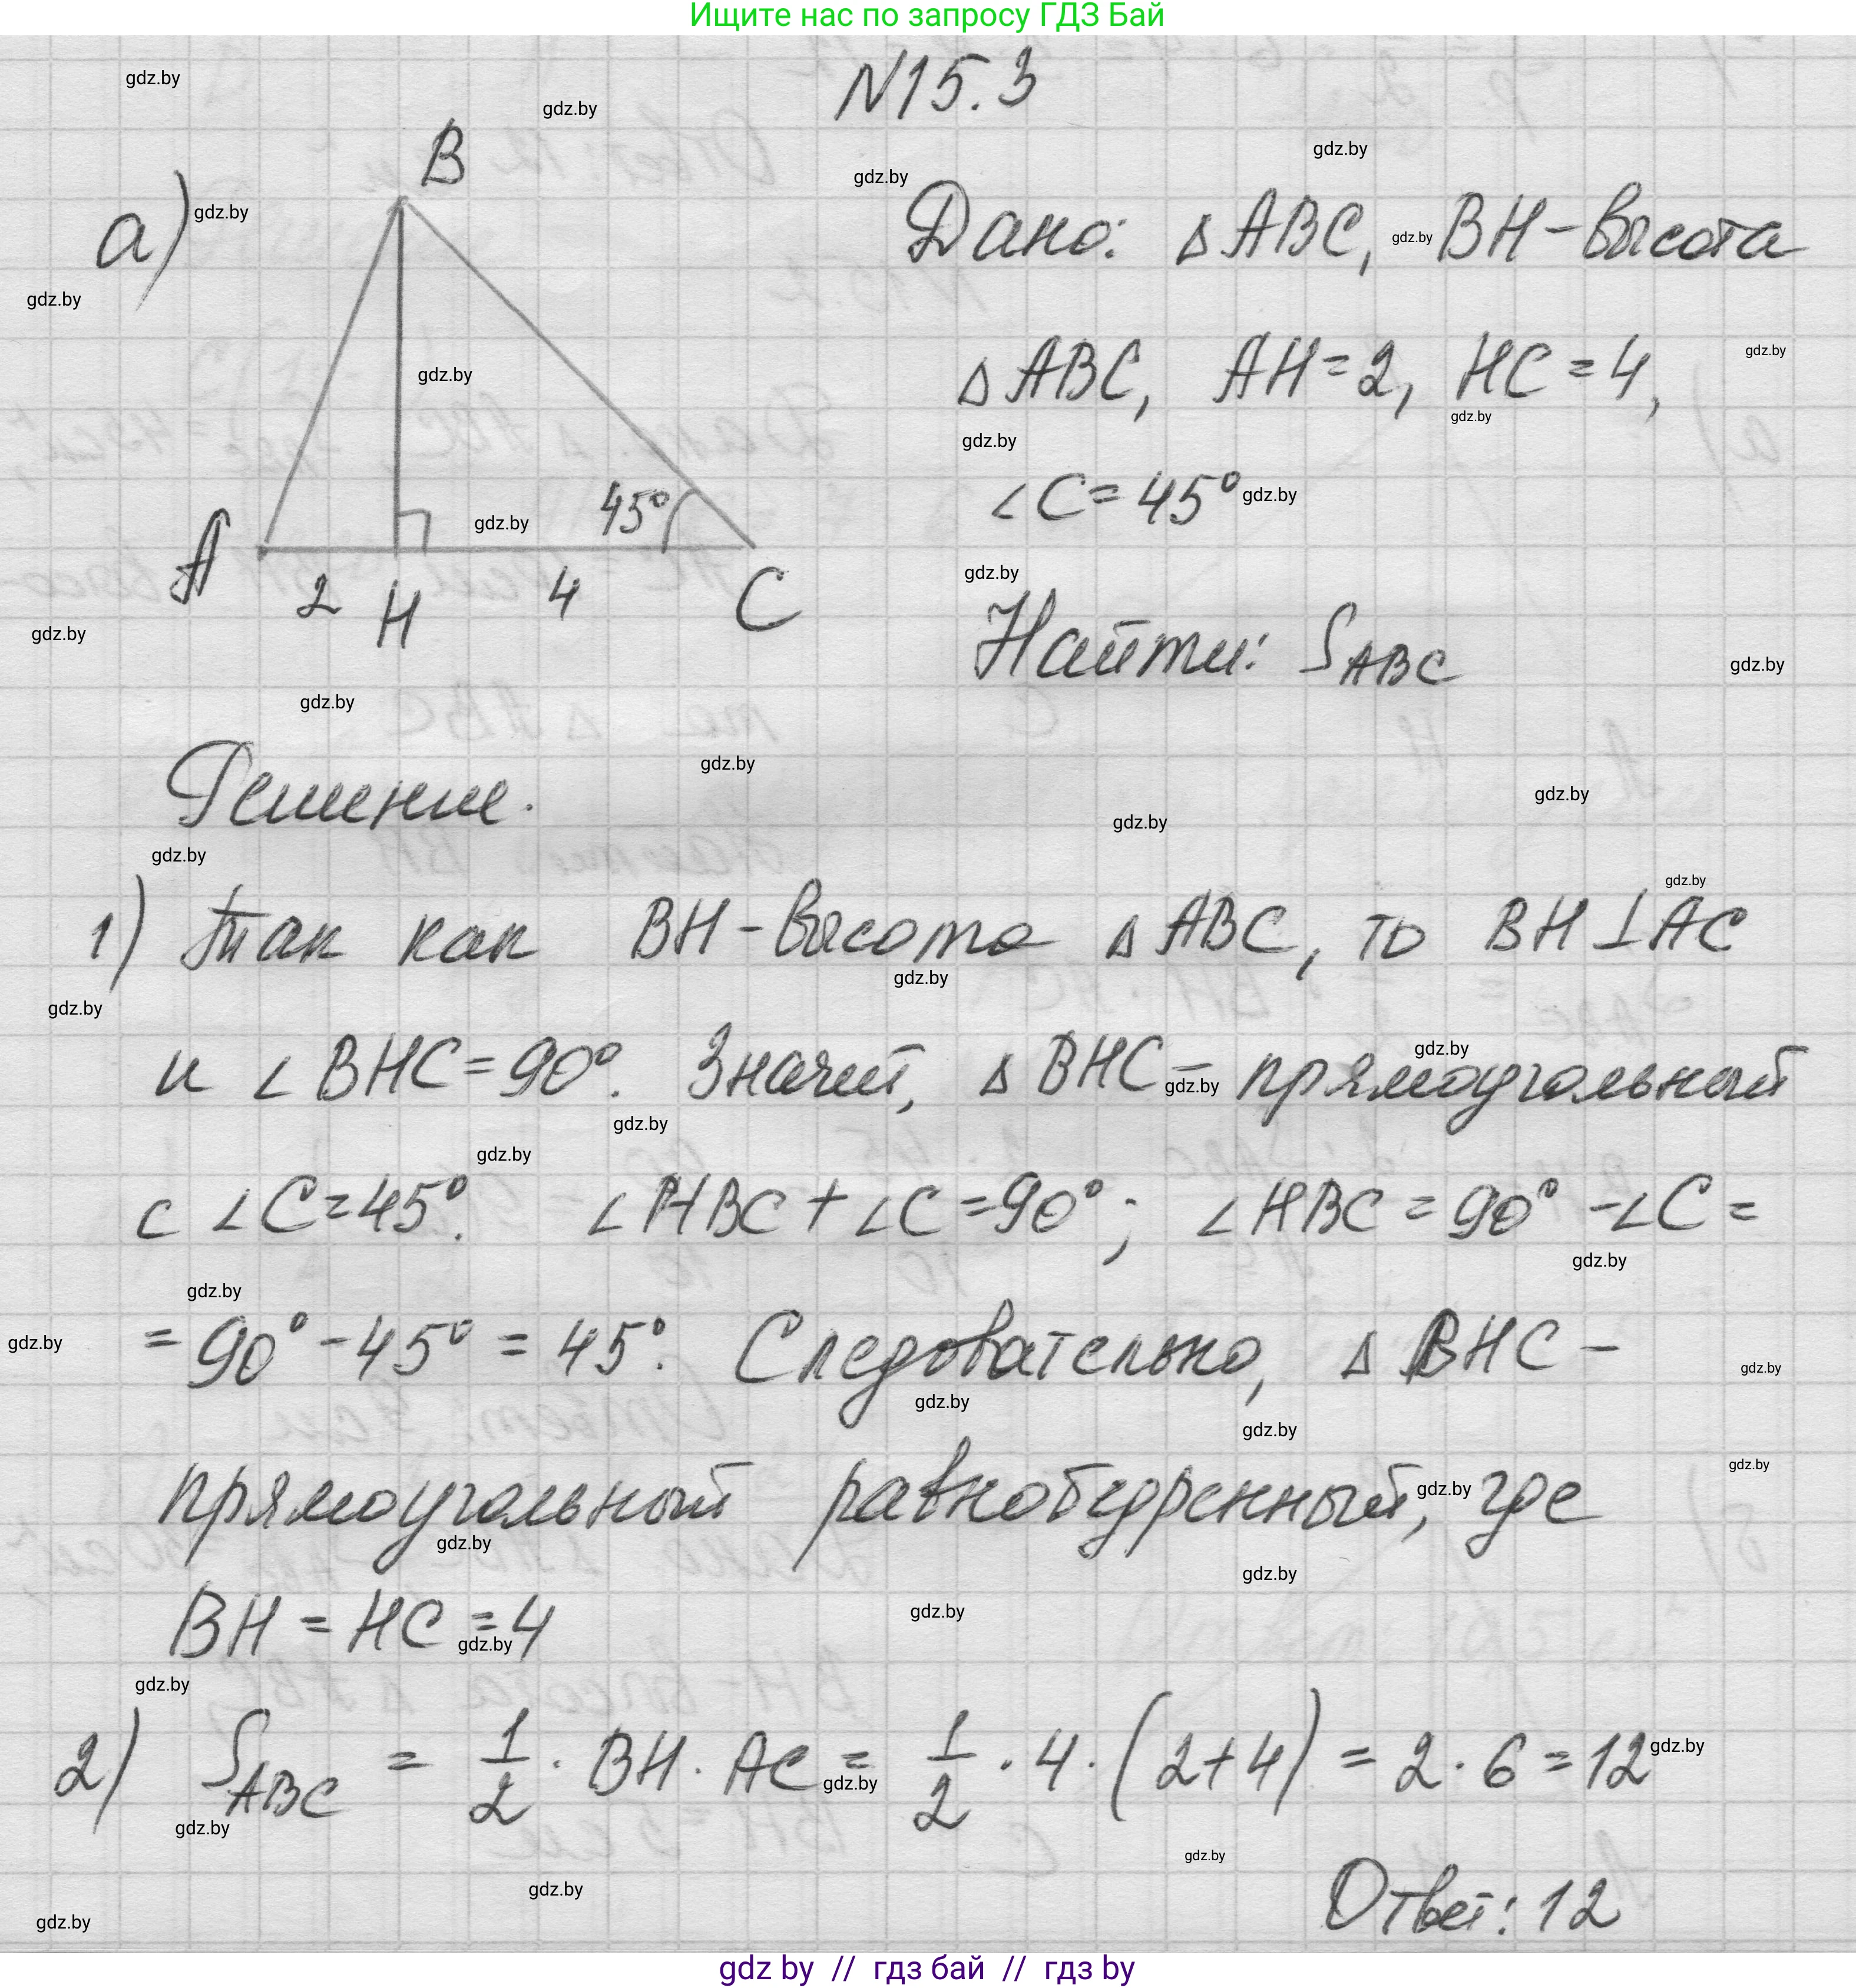 Ищите нас по запросу ГДЗ Бай
N15.3
а)
B
45°
A
2
H
4
C
Дано: △ABC, BH-высота
△ABC, AH=2, HC=4,
∠C=45°
Найти: S ABC
Решение.
1) Так как BH-высота △ABC, то BH⊥AC
и ∠BHC=90°. Значит, △BHC- прямоугольный
с ∠C=45°. ∠HBC+∠C=90°; ∠HBC=90°-∠C=
=90°-45°=45°. Следовательно, △BHC-
прямоугольный равнобедренный, где
BH=HC=4
2) S ABC = 1/2 · BH · AC = 1/2 · 4 · (2+4) = 2 · 6 = 12
Ответ: 12
gdz by // гдз бай // гдз by